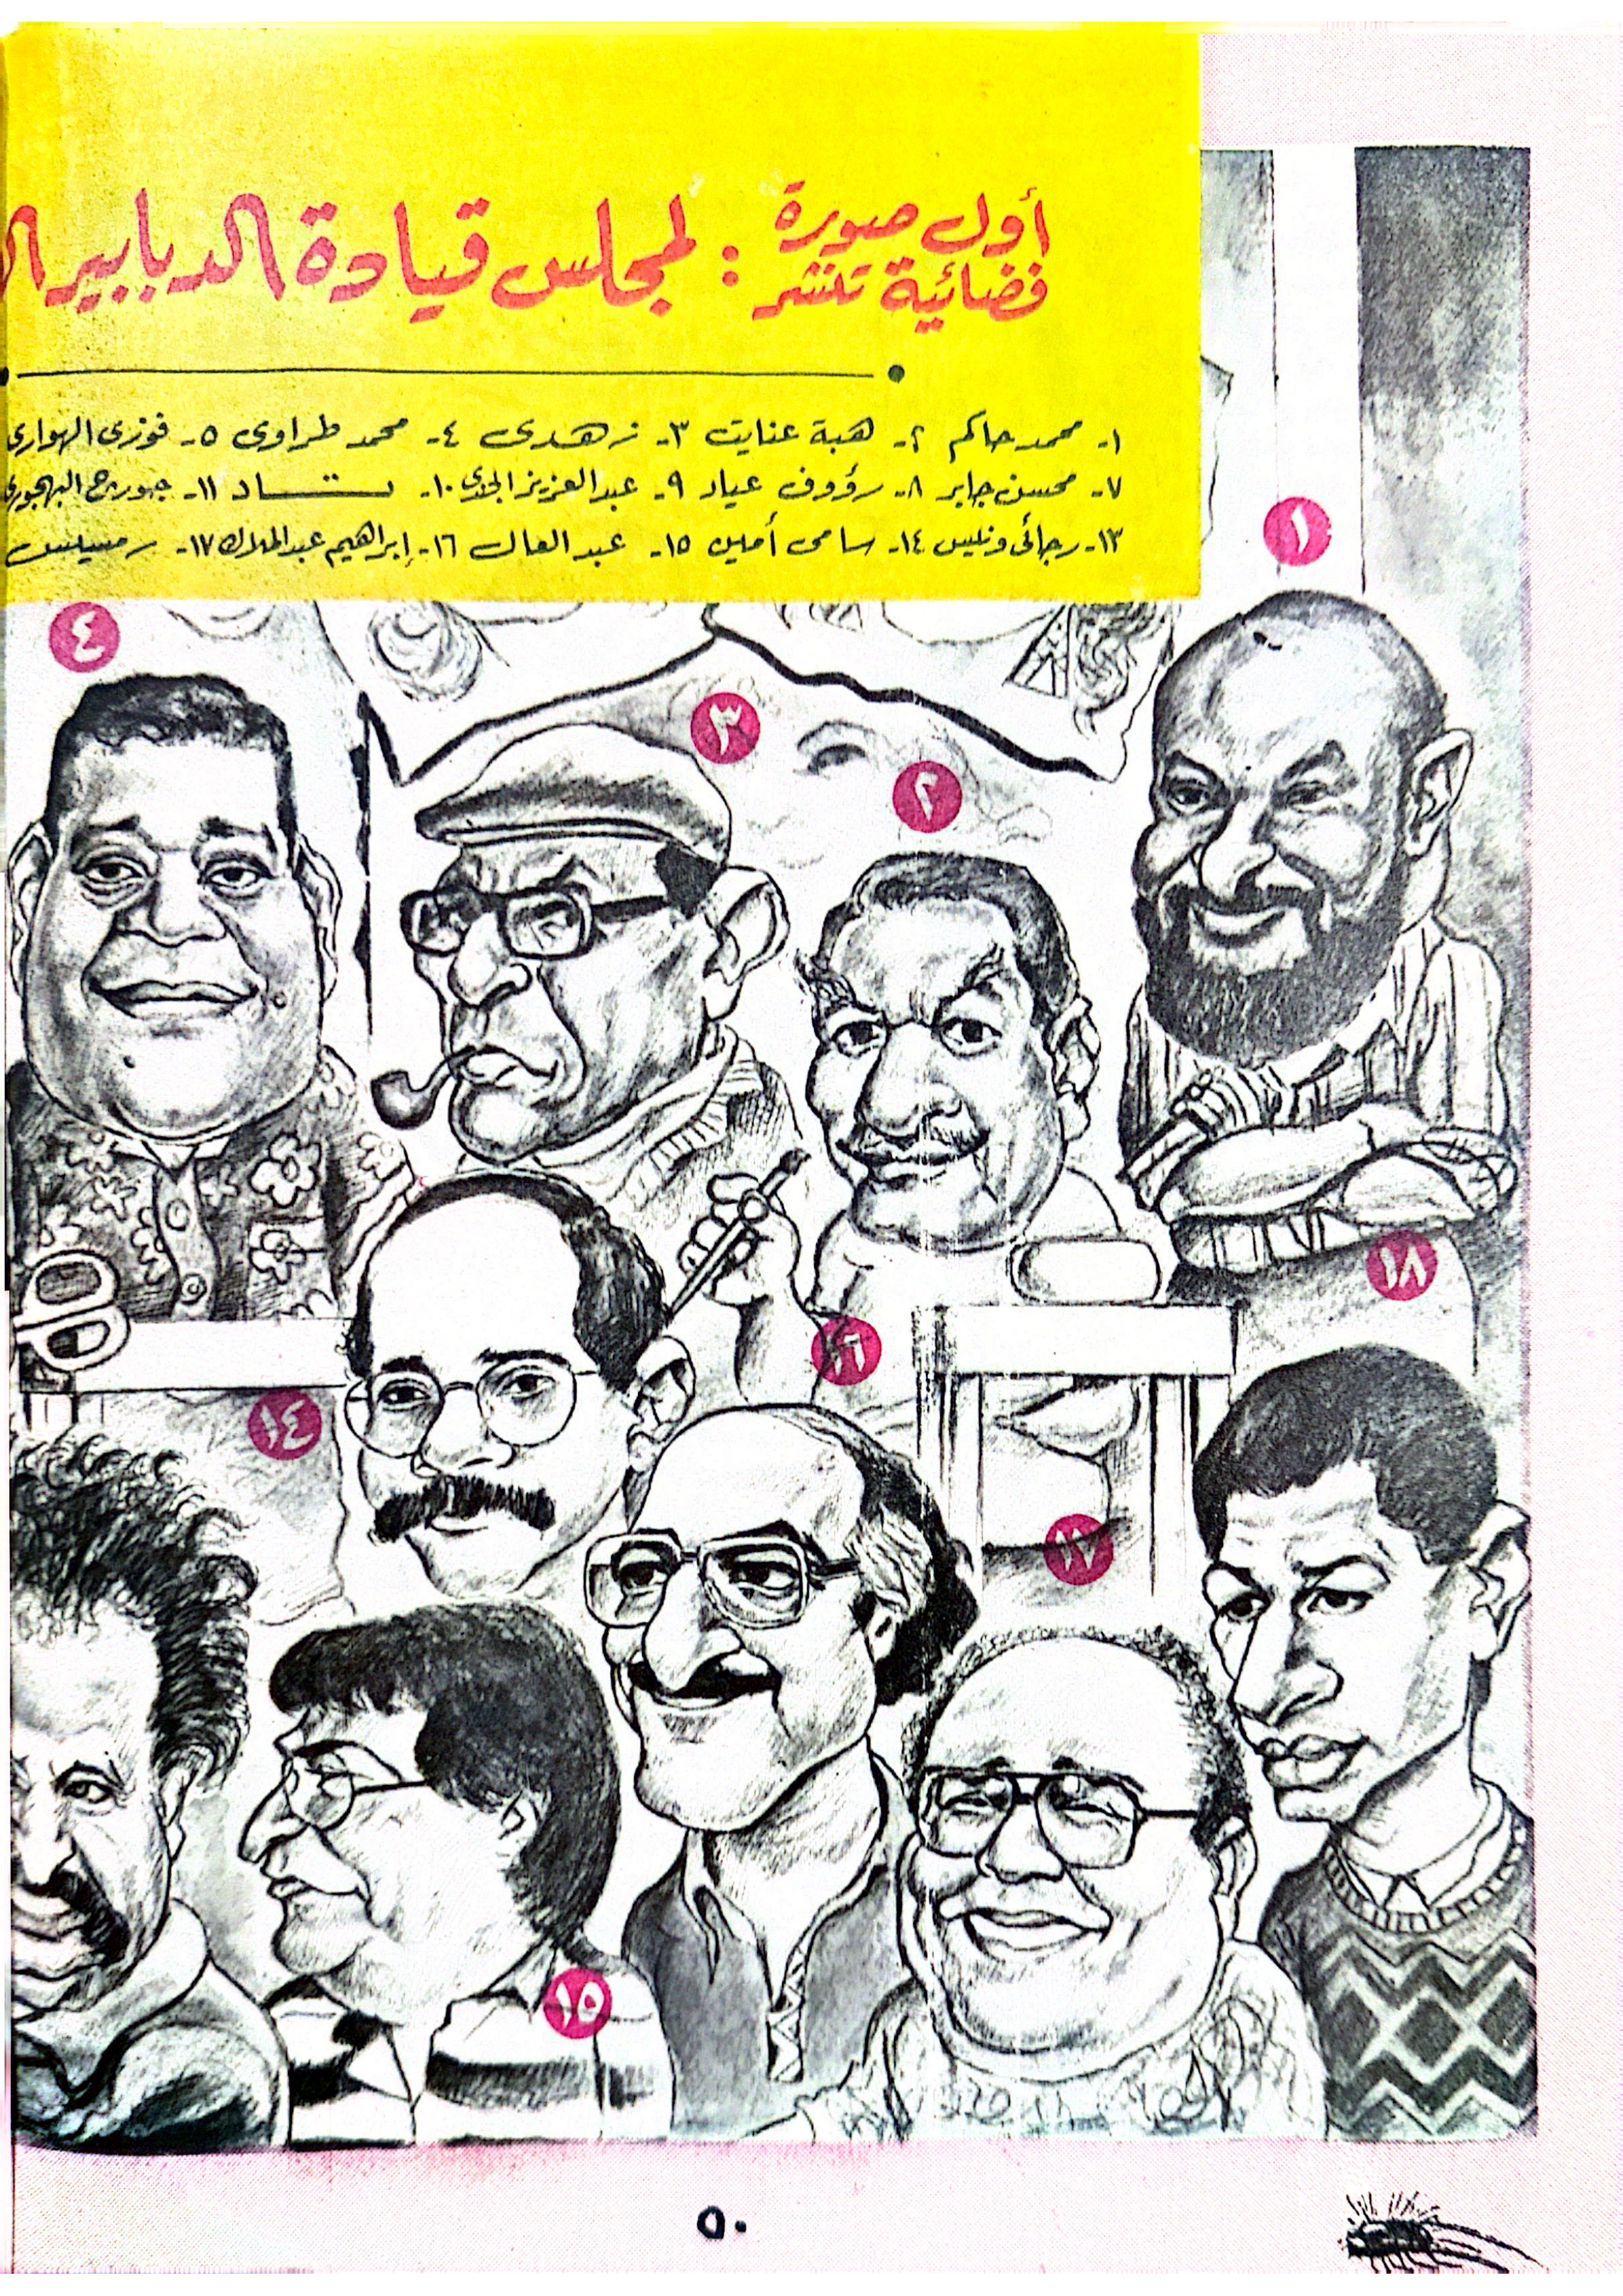 أول صورة
فضائية تنشر : لمجلس قيادة الدبابير
١- محمد حاكم ٢- هبة عنايت ٣- زهدى ٤- محمد طراوى ٥- فوزى الهوارى
٧- محسن جابر ٨- رؤوف عياد ٩- عبد العزيز الجندى ١٠- ١١- جورج البهجورى
١٣- رجائى ونيس ١٤- سامى أمين ١٥- عبد العال ١٦- إبراهيم عبد الملاك ١٧- رمسيس
١
٤
٣
٢
١٨
١٦
١٤
١٧
١٥
٥٠